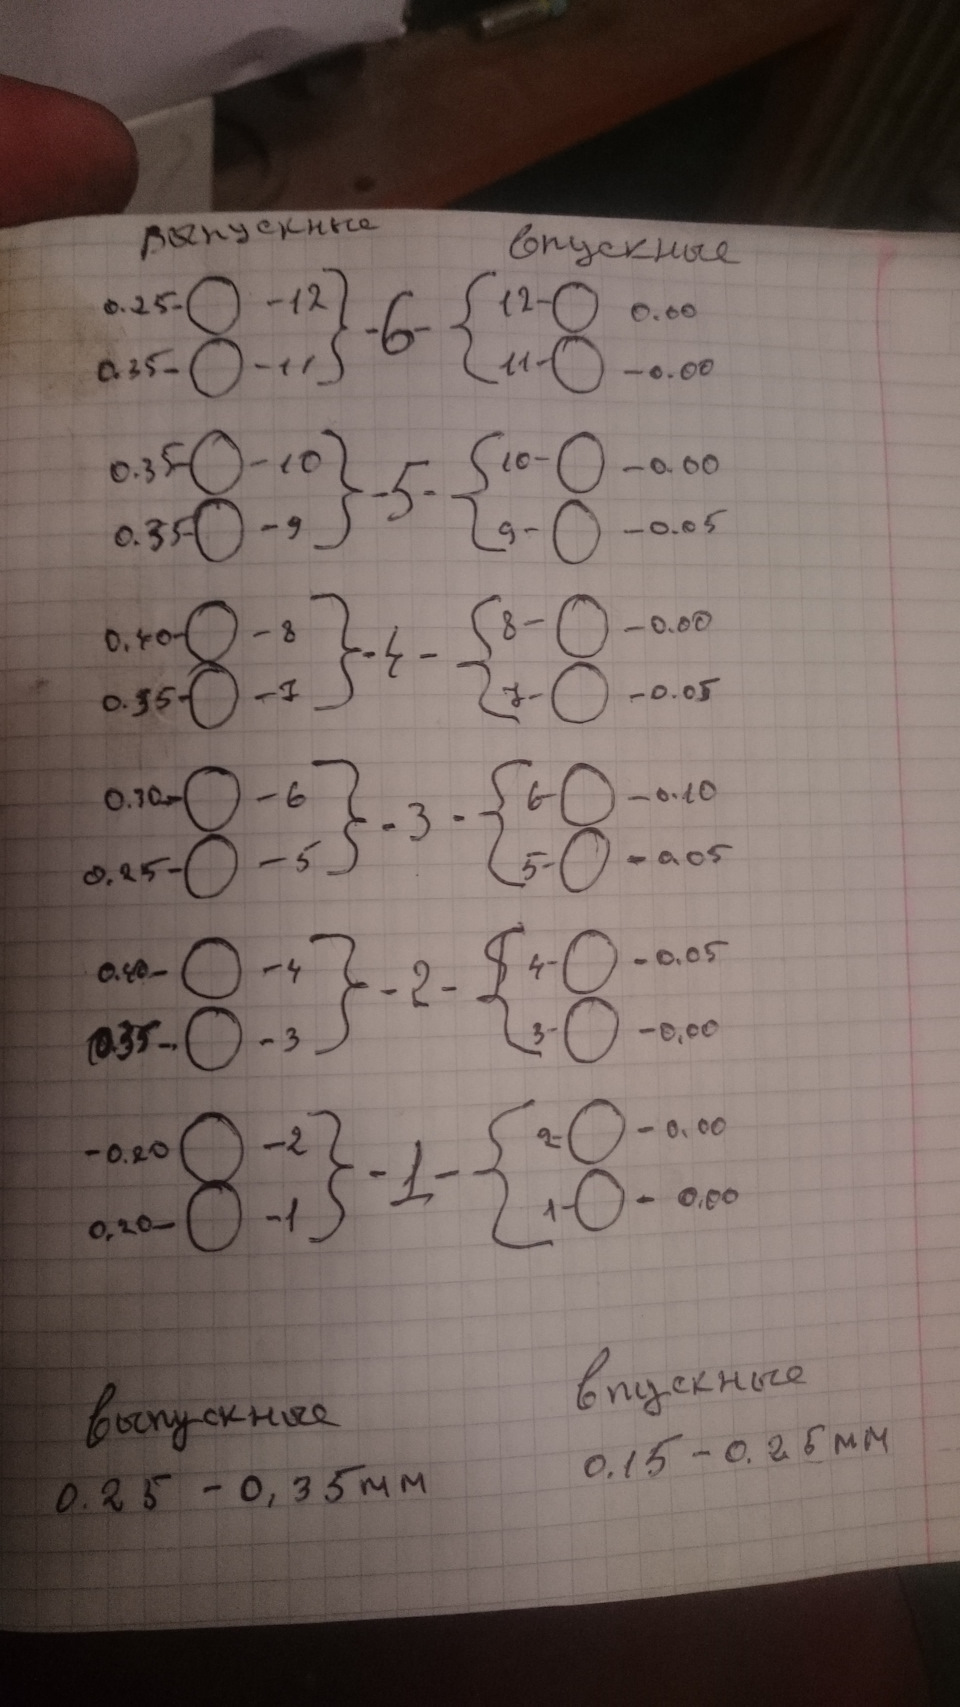 выпускные впускные
0.25- -12 } -6- { 12- 0.00
0.35- -11 11- -0.00
0.35- -10 } -5- { 10- -0.00
0.35- -9 9- -0.05
0.40- -8 } -4- { 8- -0.00
0.35- -7 7- -0.05
0.30- -6 } -3- { 6- -0.10
0.25- -5 5- -0.05
0.40- -4 } -2- { 4- -0.05
0.35- -3 3- -0,00
-0.20 -2 } -1- { 2- -0.00
0,20- -1 1- - 0.00
выпускные впускные
0.25 - 0,35мм 0.15 - 0.25мм